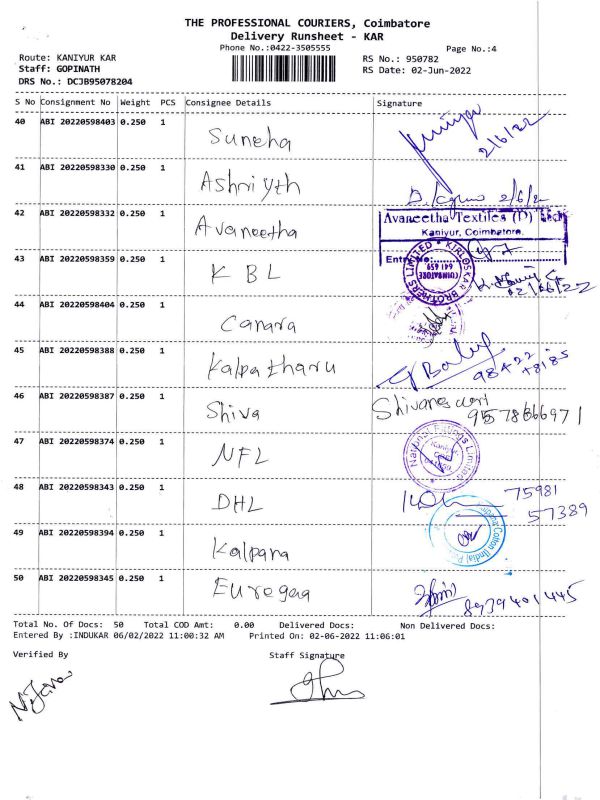 THE PROFESSIONAL COURIERS, Coimbatore
Delivery Runsheet - KAR
Phone No.:0422-3505555
Page No.:4
Route: KANIYUR KAR
RS No.: 950782
Staff: GOPINATH
RS Date: 02-Jun-2022
DRS No.: DCJB95078204
S No Consignment No Weight PCS Consignee Details Signature
40 ABI 20220598403 0.250 1 Suneha 2/6/22
41 ABI 20220598330 0.250 1 Ashriyth
42 ABI 20220598332 0.250 1 Avaneetha
Avaneetha Textiles (P) Ltd
Kaniyur, Coimbatore.
Entry No:
43 ABI 20220598359 0.250 1 KBL
KIRLOSKAR BROTHERS LIMITED
COIMBATORE
641 659
02/06/22
44 ABI 20220598404 0.250 1 Canara
45 ABI 20220598388 0.250 1 Kalpatharu
98422
78185
46 ABI 20220598387 0.250 1 Shiva
47 ABI 20220598374 0.250 1 NFL
48 ABI 20220598343 0.250 1 DHL 75981
57389
49 ABI 20220598394 0.250 1 Kalpana
50 ABI 20220598345 0.250 1 Euregaa 8939401445
Total No. Of Docs: 50 Total COD Amt: 0.00 Delivered Docs: Non Delivered Docs:
Entered By :INDUKAR 06/02/2022 11:00:32 AM Printed On: 02-06-2022 11:06:01
Verified By Staff Signature